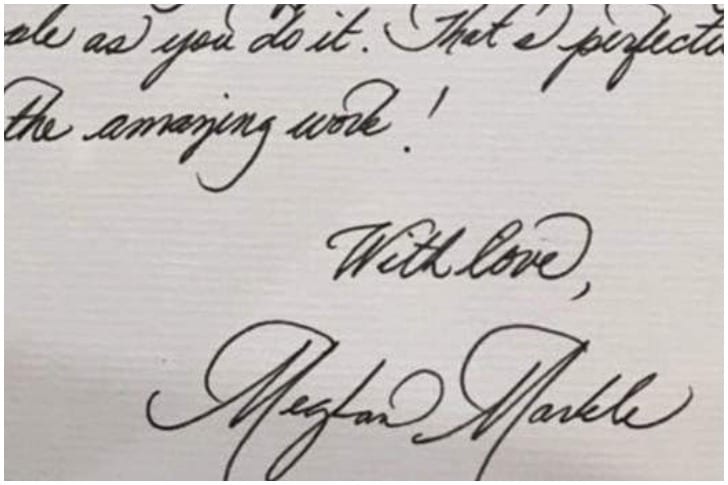 as you do it. That's perfectu
the amazing work!
With love,
Meghan Markle